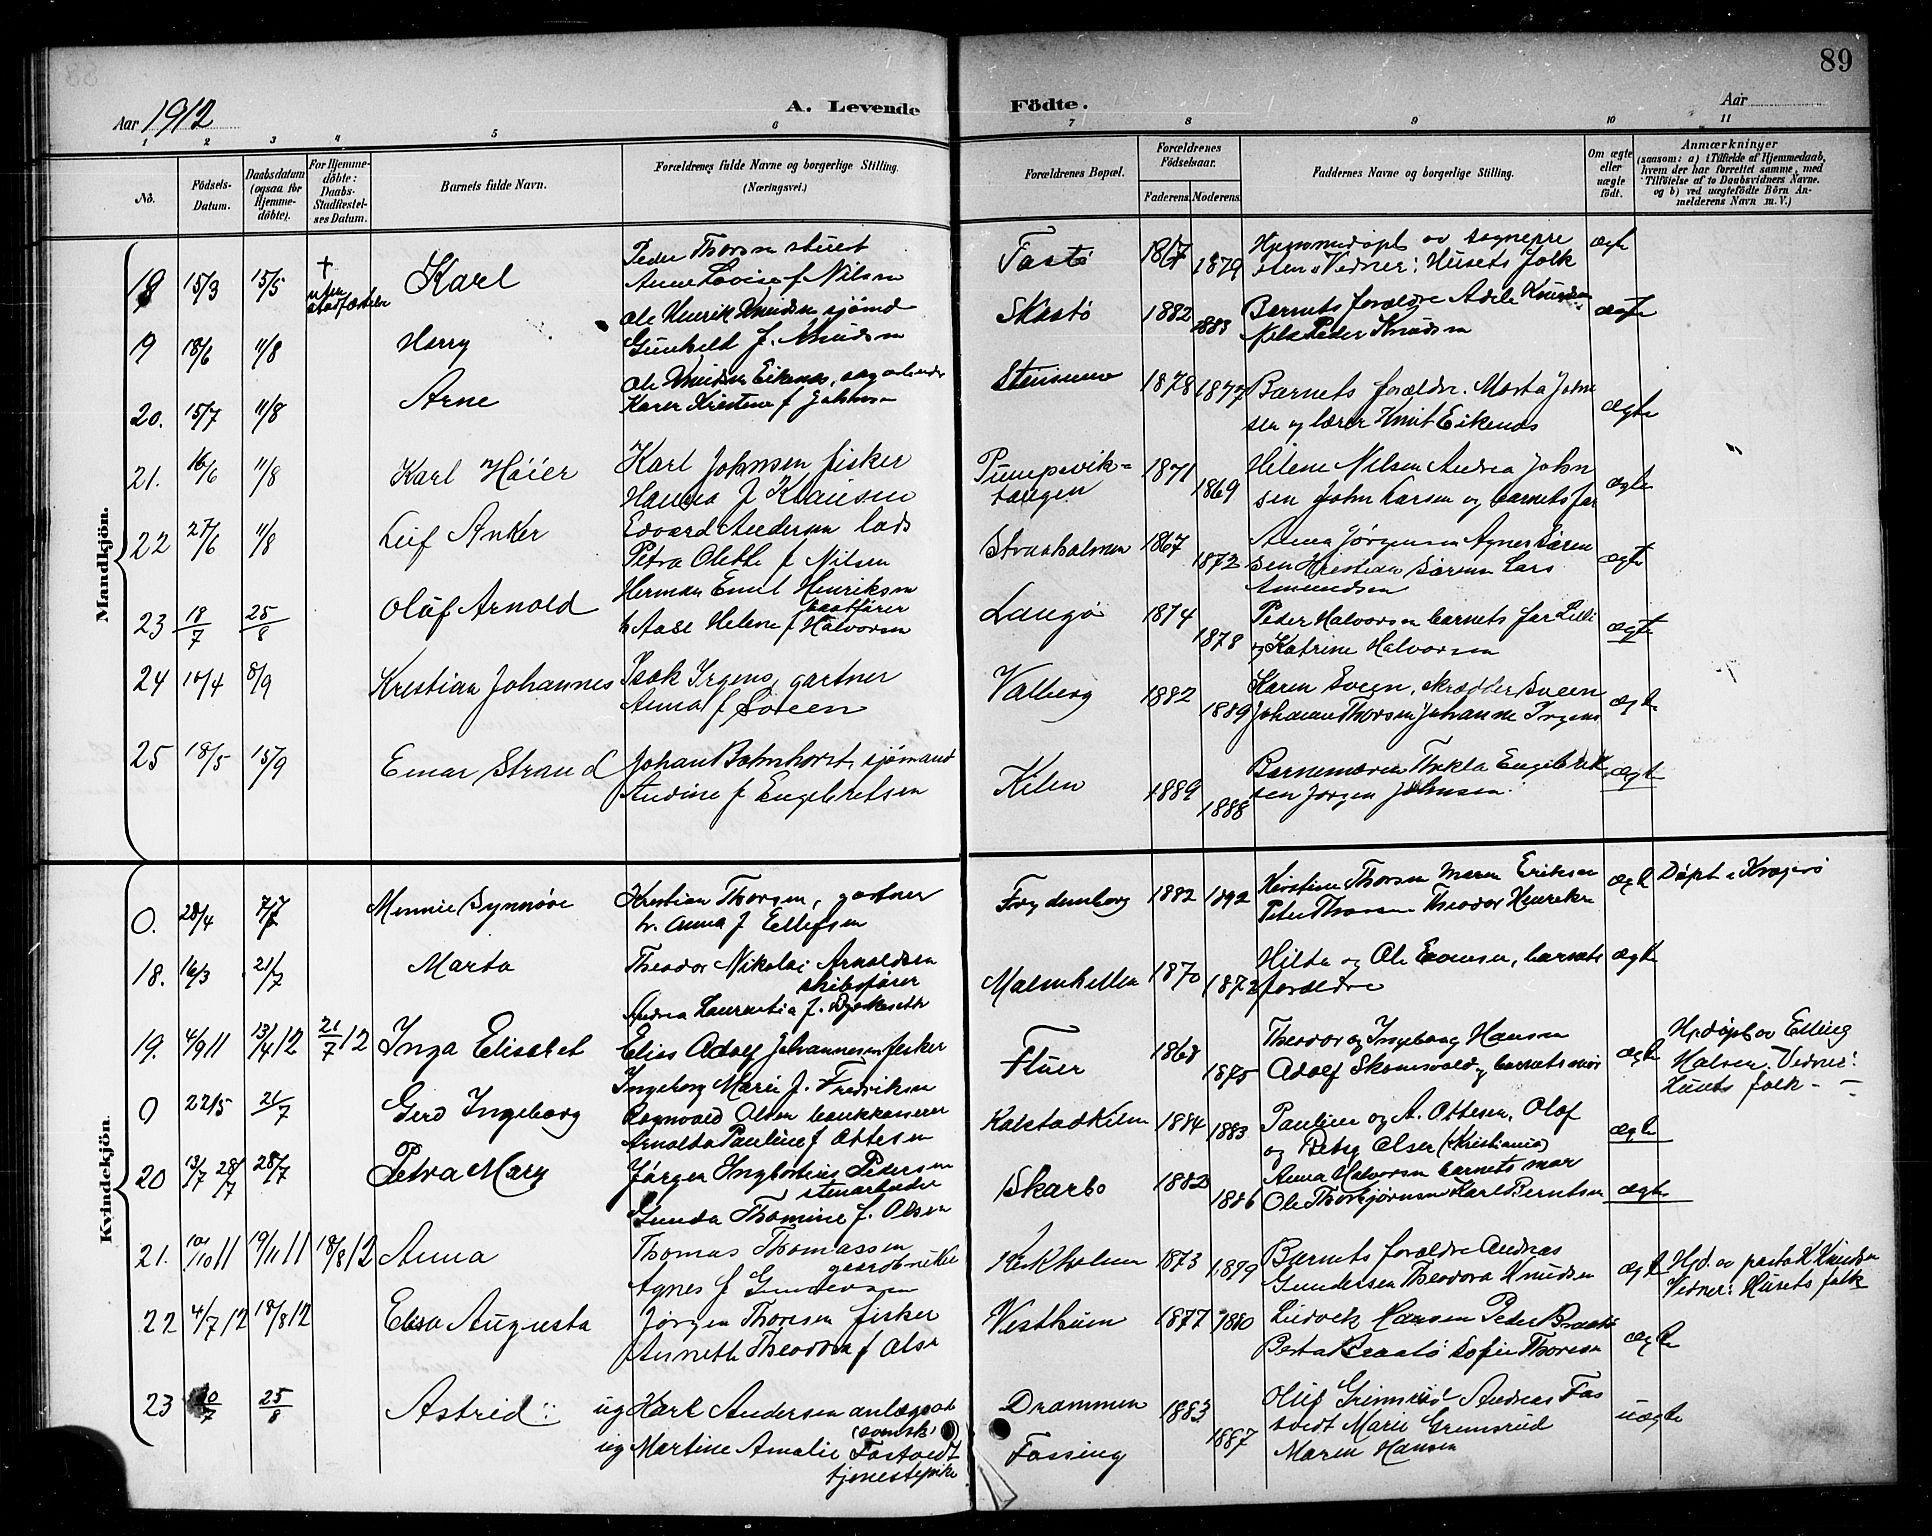 89
Aar 1912
A. Levende
Födte.
Aar
1 2 3 4 5 6 7 8 9 10 11
No.
Födsels-Datum.
Daabsdatum (ogsaa for Hjemme-döbte).
For Hjemme-döbte: Daabs-Stadfæstel-ses Datum.
Barnets fulde Navn.
Forældrenes fulde Navne og borgerlige Stilling. (Næringsvei.)
Forældrenes Bopæl.
Forældrenes Födselsaar.
Faderens. Moderens.
Faddernes Navne og borgerlige Stilling.
Om ægte eller uægte födt.
Anmærkninger
(saasom: a) i Tilfælde af Hjemmedaab, hvem der har forrettet samme, med Tilföielse af to Daabsvidners Navne. og b) ved uægtefödte Börn An-melderens Navn m. V.)
Mandkjön.
18 15/3 15/5 † uten stadfæstelse Karl
Peder Thorsen stuert
Anne Lovise f Nilsen
Fostø 1867 1879
Hjemmedøpt av sognepre
sten Vidner: Husets folk
ægte
19 18/6 11/8 Harry
Ole Henrik Knudsen sjømd
Gunhild f. Knudsen
Skåtø 1882 1883
Barnets forældre Adele Knudsen
Nils Peder Knudsen
ægte
20. 15/7 11/8 Arne
Ole Knudsen Eikenes,
Karen Kristine f Jakobsen
1878 1877
Barnets forældre. Marta John
sen og lærer Knut Eikenes
ægte
21. 16/6 11/8 Karl Høier
Karl Johnsen fisker
Hanna f Klausen
Pumpevik-
tangen 1871 1869
Helene Nilsen Andrea John
sen John Larsen og barnets far
ægte
22 27/6 11/8 Leif Anker
Edvard Andersen lods
Petra Olette f Nilsen
Straaholmen 1867 1872
Anna Jørgensen Agnes Søren
sen Kristian Sørensen Lars
Amundsen
ægte
23 18/7 25/8 Oluf Arnold
Herman Emil Henriksen
baatfører
h Aase Helene f Halvorsen
Langø 1874 1878
Peder Halvorsen barnets far Lilli
og Katrine Halvorsen
ægte
24 10/4 8/9 Kristian Johannes
Isak Irgens, gartner
Anna f Sveen
Valberg 1882 1889
Karen Sveen, skrædder Sveen
Johanne Thorsen Johanne Irgens
ægte
25 18/5 15/9 Einar Strand
Johan Bohnhorst, sjømand
Andine f Engebretsen
Kilen 1889 1888
Barnemoren Thekla Engebret
sen Jørgen Johnsen
ægte
Kvindekjön.
0. 28/4 7/7 Minnie Synnøve
Kristian Thorsen, gartner
h. Anna f Ellefsen
Frydensborg 1882 1892
Kirstine Thorsen Maren Eriksen
Peter Thorsen Theodor Henriksen
ægte Døpt i Kragerø
18. 16/3 21/7 Marta
Theodor Nikolai Arnoldsen
skibsfører
Andrea Laurentia f.
Malmhellen 1870 1872
Hilda og Ole Evensen, barnets
forældre
ægte
19. 4/9 11 13/4 12 21/7 12 Inga Elisabet
Elias Adolf Johannesen fisker
Ingeborg Marie f. Fredriksen
Fluer 1868 1875
Theodor og Ingeborg Hansen
Adolf Skomsvold og barnets mor
ægte
Hjdøpt av Elling
Halsen. Vidner:
Husets folk -
0 22/5 21/7 Gerd Ingeborg
Ragnvald Olsen bankkasserer
Arnolda Pauline f Ottesen
Kalstadkilen 1884 1883
Pauline og A. Ottesen, Olaf
og Betsy Olsen (Kristiania)
ægte
20 13/7 28/7 28/7 Petra Mary
Jørgen Ingbortius Pedersen
stenarbeider
Gunda Thomine f. Olsen
Skarbo 1882 1886
Anna Halvorsen barnets mor
Ole Thorbjørnsen Karl Berntsen
ægte
21. 10/10 11 19/11 11 18/8 12 Anna
Thomas Thomassen
gaardbruker
Agnes f Gundersen
Kirkholmen 1873 1879
Barnets forældre Andreas
Gundersen Theodora Knudsen
ægte
Hjd. av pastor K Knudsen
Vidner: Husets folk
22 4/7 12 18/8 12 Elsa Augusta
Jørgen Thoresen fisker
Anneth Theodora f Olsen
Vesthun 1877 1880
Ludvik Hansen Peder Braatø
Berta Braatø Sofie Thoresen
ægte
23 20/7 25/8 Astrid
ug Karl Andersen anlægsarb
(svensk)
ug Martine Amalie Fostvedt
tjenestepike
Drammen 1883
Fossing 1887
Oluf Grimsrød Andreas Fos
tvedt Marie Grimsrud
Maren Hansen
uægte